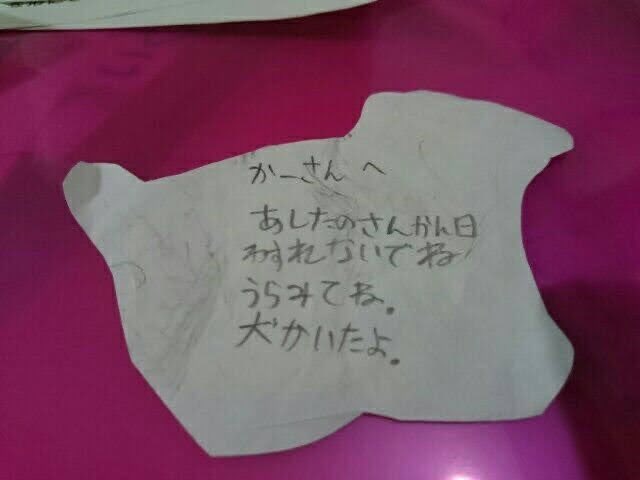 かーさんへ
あしたのさんかん日
わすれないでね
うらみてね。
犬かいたよ。